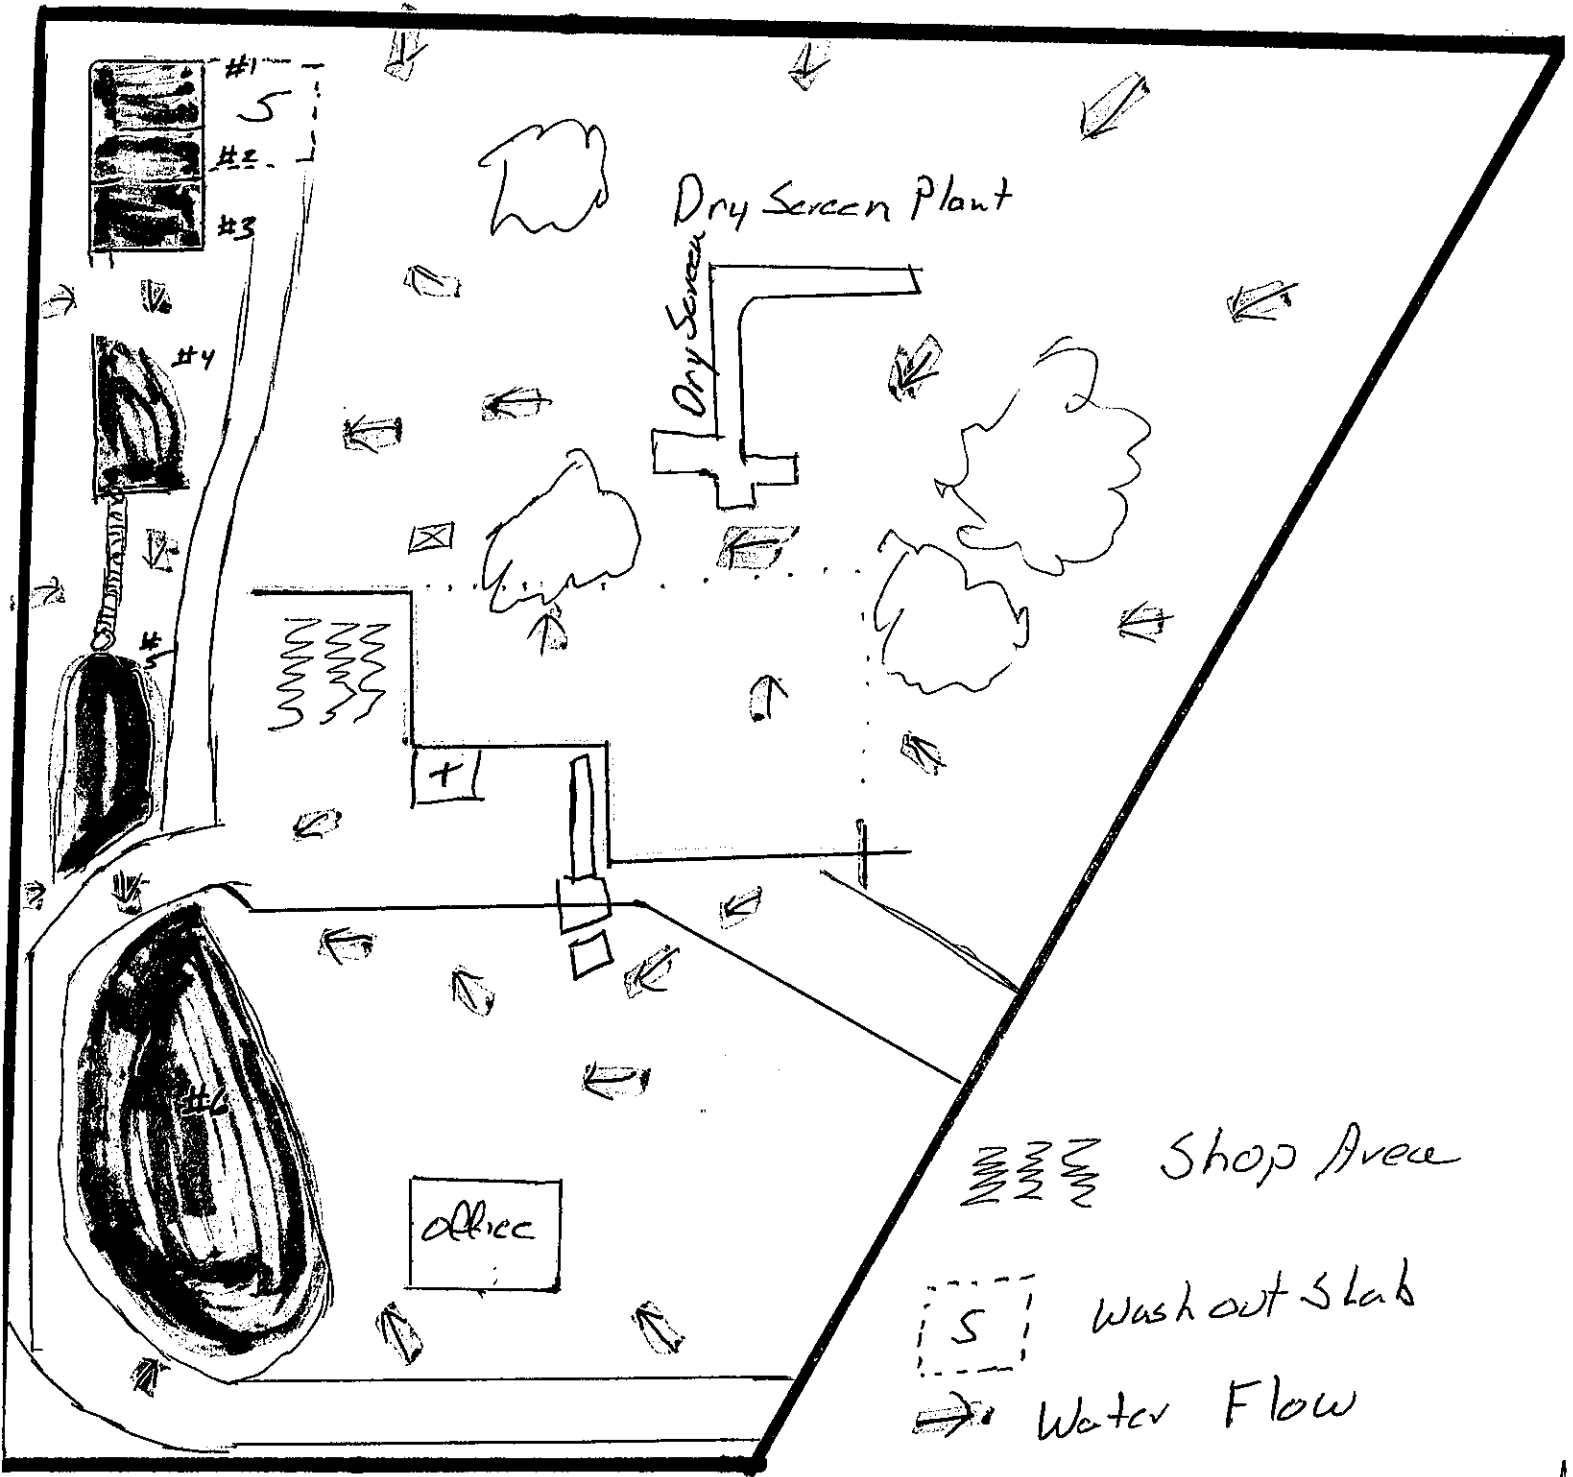 #1
S
#2
#3
Dry Screen Plant
Dry Screen
#4
#5
+
#6
office
Shop Area
S
Washout Slab
Water Flow